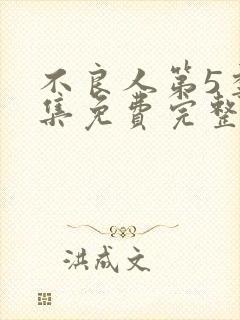 不良人第5季
集免费完整
洪成文